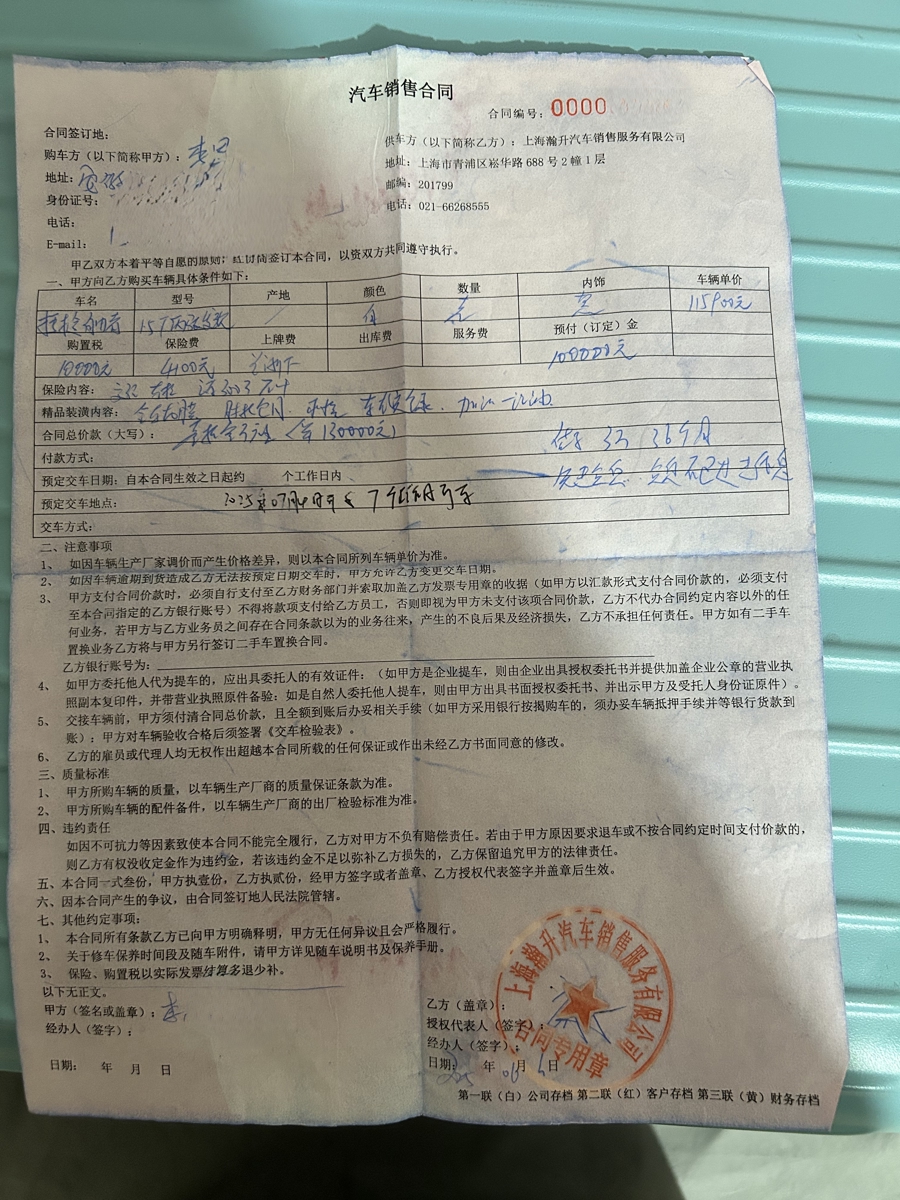 汽车销售合同
合同编号：0000
合同签订地：
购车方（以下简称甲方）：李
地址：安徽
身份证号：
电话：
E-mail:
供车方（以下简称乙方）：上海瀚升汽车销售服务有限公司
地址：上海市青浦区崧华路 688 号 2 幢 1 层
邮编：201799
电话：021-66268555
甲乙双方本着平等自愿的原则，经协商签订本合同，以资双方共同遵守执行。
一、甲方向乙方购买车辆具体条件如下：
车名 型号 产地 颜色 数量 内饰 车辆单价
1.5T / 白 黑 115900元
购置税 保险费 上牌费 出库费 服务费 预付（订定）金
10000元 4100元 100000元
保险内容： 交强 300万
精品装潢内容： 全车内膜
合同总价款（大写）： （130000元）
付款方式： 3万 36个月
预定交车日期：自本合同生效之日起约 个工作日内
预定交车地点： 2025年07月
交车方式：
二、注意事项
1、 如因车辆生产厂家调价而产生价格差异，则以本合同所列车辆单价为准。
2、 如因车辆逾期到货造成乙方无法按预定日期交车时，甲方允许乙方变更交车日期。
3、 甲方支付合同价款时，必须自行支付至乙方财务部门并索取加盖乙方发票专用章的收据（如甲方以汇款形式支付合同价款的，必须支付
至本合同指定的乙方银行账号）不得将款项支付给乙方员工，否则即视为甲方未支付该项合同价款，乙方不代办合同约定内容以外的任
何业务，若甲方与乙方业务员之间存在合同条款以为的业务往来，产生的不良后果及经济损失，乙方不承担任何责任。甲方如有二手车
置换业务乙方将与甲方另行签订二手车置换合同。
乙方银行账号为：
4、 如甲方委托他人代为提车的，应出具委托人的有效证件：（如甲方是企业提车，则由企业出具授权委托书并提供加盖企业公章的营业执
照副本复印件，并带营业执照原件备验：如是自然人委托他人提车，则由甲方出具书面授权委托书、并出示甲方及受托人身份证原件）。
5、 交接车辆前，甲方须付清合同总价款，且全额到账后办妥相关手续（如甲方采用银行按揭购车的，须办妥车辆抵押手续并等银行货款到
账）：甲方对车辆验收合格后须签署《交车检验表》。
6、 乙方的雇员或代理人均无权作出超越本合同所载的任何保证或作出未经乙方书面同意的修改。
三、质量标准
1、 甲方所购车辆的质量，以车辆生产厂商的质量保证条款为准。
2、 甲方所购车辆的配件备件，以车辆生产厂商的出厂检验标准为准。
四、违约责任
如因不可抗力等因素致使本合同不能完全履行，乙方对甲方不负有赔偿责任。若由于甲方原因要求退车或不按合同约定时间支付价款的，
则乙方有权没收定金作为违约金，若该违约金不足以弥补乙方损失的，乙方保留追究甲方的法律责任。
五、本合同一式叁份，甲方执壹份，乙方执贰份，经甲方签字或者盖章、乙方授权代表签字并盖章后生效。
六、因本合同产生的争议，由合同签订地人民法院管辖。
七、其他约定事项：
1、 本合同所有条款乙方已向甲方明确释明，甲方无任何异议且会严格履行。
2、 关于修车保养时间段及随车附件，请甲方详见随车说明书及保养手册。
3、 保险、购置税以实际发票结算多退少补。
以下无正文。
甲方（签名或盖章）：李
经办人（签字）：
日期： 年 月 日
乙方（盖章）：
授权代表人（签字）：
经办人（签字）：
日期：2025 年 06 月 日
上海瀚升汽车销售服务有限公司
合同专用章
第一联（白）公司存档 第二联（红）客户存档 第三联（黄）财务存档